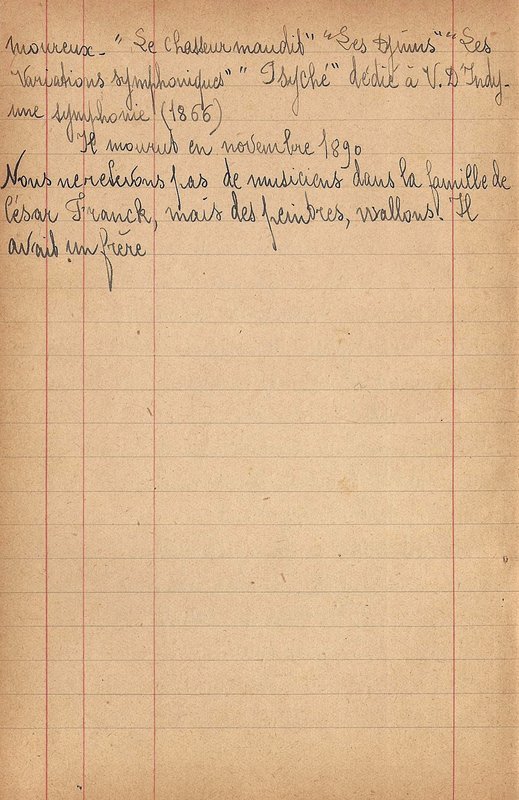 moureux_ " Le Chasseur maudit" "Les Djinns" "Les
Variations symphoniques" " Psyché" dédié à V. D'Indy-
une symphonie (1866)
Il mourut en novembre 1890
Nous ne relevons pas de musiciens dans la famille de
César Franck, mais des peintres, wallons. Il
avait un frère